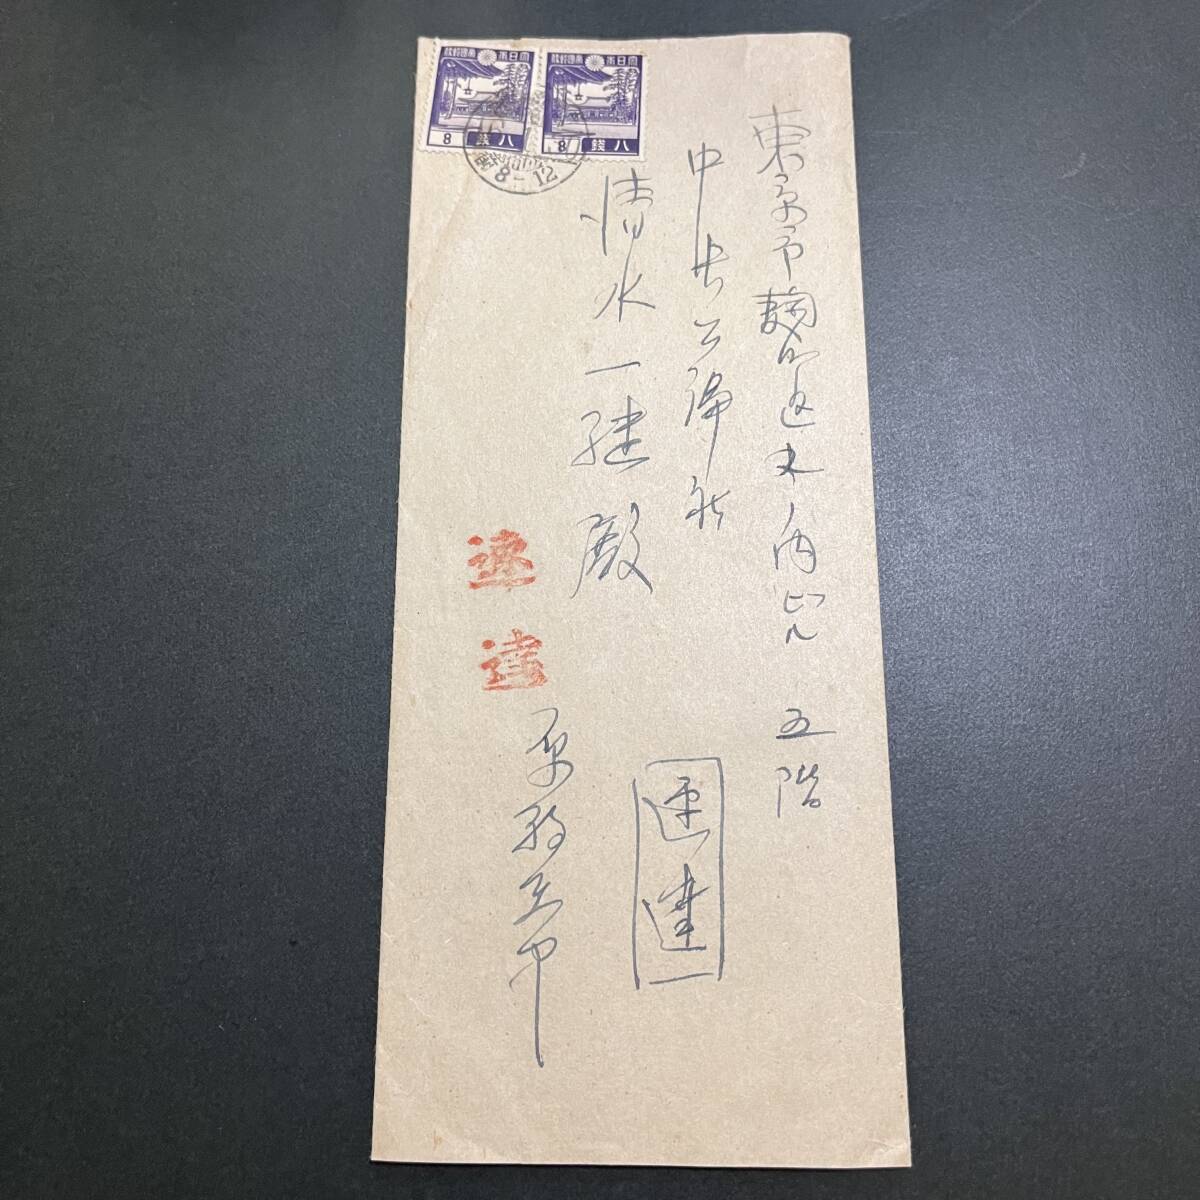 東京市麹町区丸ノ内ビル 五階
中央公論社
清水一継殿
速達
速達
原稿在中
大日本帝國郵便
八銭 8
大日本帝國郵便
八銭 8
8-12